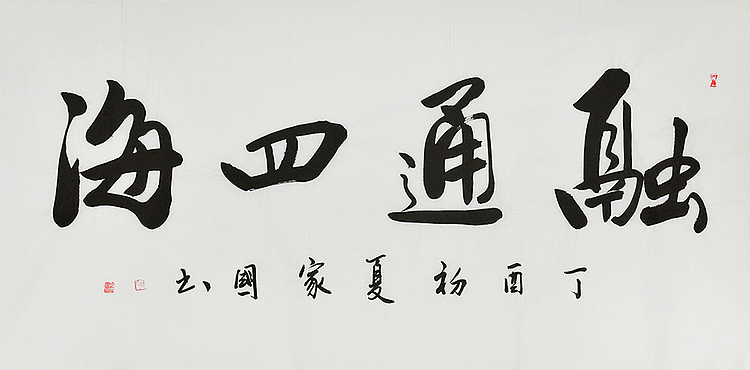 融通四海
丁酉初夏家國书